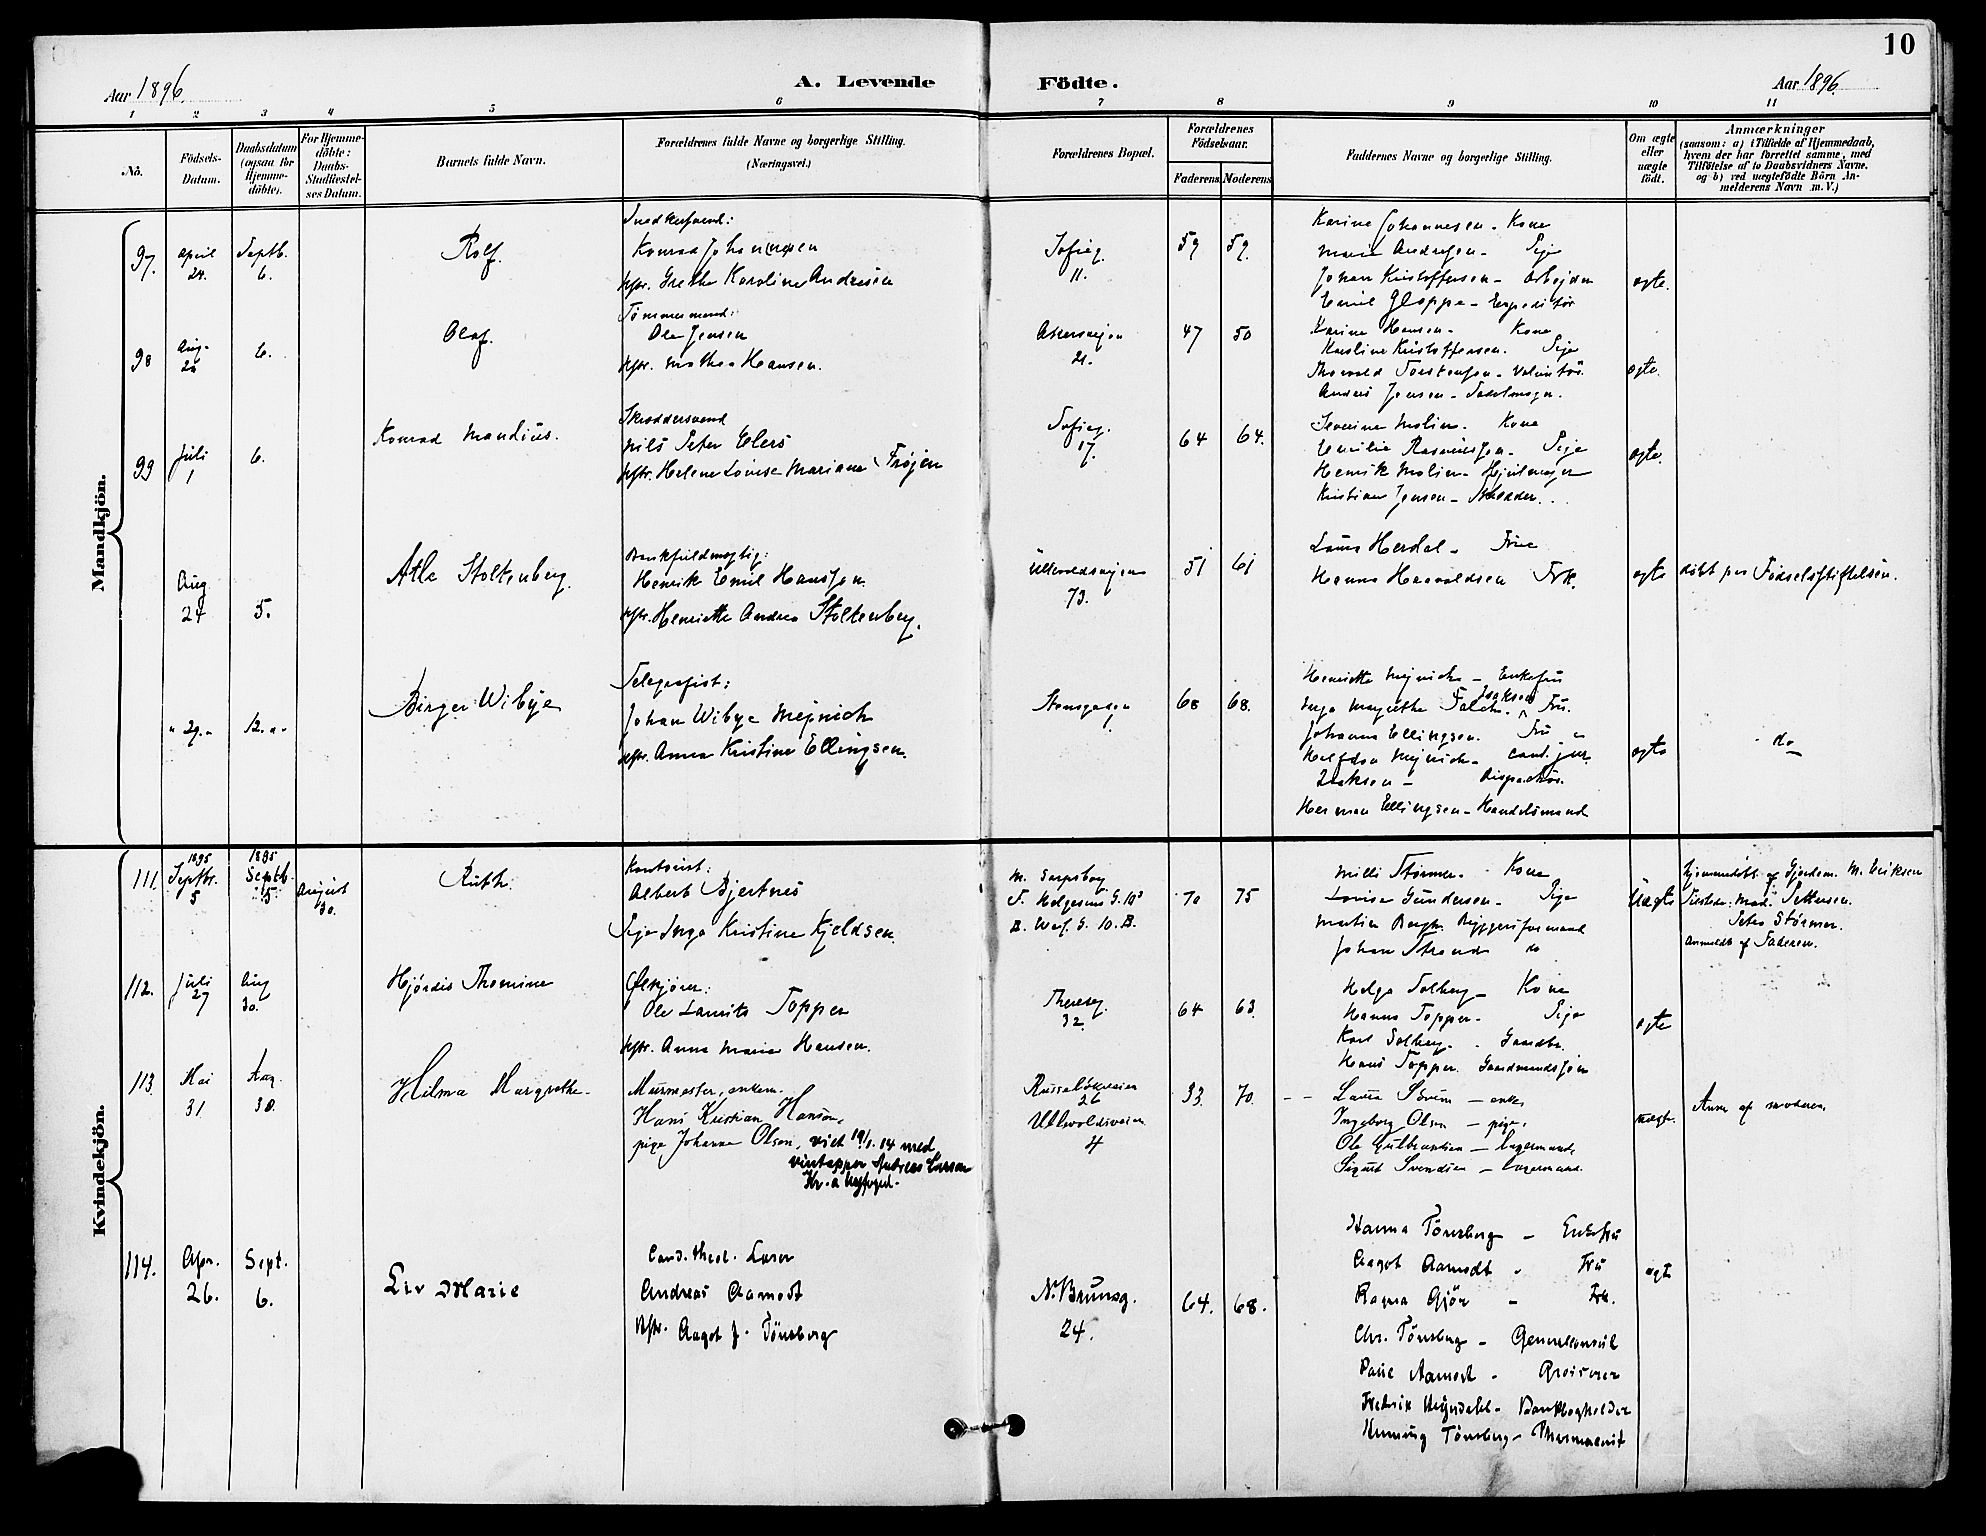 10
Aar 1896.
A. Levende Födte.
Aar 1896.
1 2 3 4 5 6 7 8 9 10 11
No.
Födsels-Datum.
Daabsdatum (ogsaa for Hjemme-döbte).
For Hjemme-döbte: Daabs-Stadfæstel-ses Datum.
Barnets fulde Navn.
Forældrenes fulde Navne og borgerlige Stilling.
(Næringsvei.)
Forældrenes Bopæl.
Forældrenes Födselsaar.
Faderens Moderens
Faddernes Navne og borgerlige Stilling.
Om ægte eller uægte födt.
Anmærkninger
(saasom: a) i Tilfælde af Hjemmedaab,
hvem der har forrettet samme, med
Tilföielse af to Daabsvidners Navne.
og b) ved uægtefödte Börn An-
melderens Navn m. V.)
Mandkjön.
97. April 24. Septb. 6.
Rolf.
Snedkersvend:
Konrad Johannesen
Hstr. Grethe Karoline Andresen
Sofieg. 11.
59 59.
Karine Johannesen - Kone
Marie Andresen - Pige
Johan Kristoffersen - Arbejder
Emil Gloppe - Expeditör
ægte.
98 Aug. 6.
Olaf.
Tömmermand:
Ole Jensen
Hstr. Mathea Hansen.
Akersvejen 21.
47 50
Karine Hansen - Kone
Karoline Kristoffersen. Pige
Thorvald Torstensen - Volontör.
Anders Jensen - Sadelmager.
ægte.
99 Juli 1 6.
Konrad Mandius.
Skræddersvend
Nils Peter Elers
Hstr. Helene Lovise Mariane Frøjen
Sofieg. 17.
64 64.
Severine Molin. Kone
Emilie Rasmussen - Pige
Henrik Molin - Hjulmager
Kristian Jensen - Skrædder.
ægte.
Aug 24 5.
Atle Stoltenberg.
Bankfuldmægtig:
Henrik Emil Hanssen
Hstr. Henriette Andrea Stoltenberg.
Ullevoldsvejen 73.
51 61
Laura Herdal - Frue
Hanna Haavaldsen Frk.
ægte
døbt paa Födselsstiftelsen.
" 29. " 12. " "
Birger Wibye
Telegrafist:
Johan Wibye Mejnich
Hstr. Anna Kristine Ellingsen.
Stensgaden 1.
68 68.
Henriette Mejnich - Enkefru
Inga Margrethe Falch Isaksen Fru.
Johanna Ellingsen. Fru
Halfdan Mejnich - cand. jur.
Isaksen - Dispachör.
Herman Ellingsen - Handelsmand
ægte
do
Kvindekjön.
111. 1895 Septbr. 5 1895 Septb. 15. August 30.
Ruth.
Kontorist:
Albert Bjertnes
Pige Inga Kristine Kjeldsen.
M. Sarpsborg
F. Helgesens G. 10
B. Werg. G. 10. B.
70 75
Milli Størmer - Kone
Lovise Gundersen - Pige
Martin Bergh. Byggeriformand
Johan Strand do
Uægte
Hjemmedöbt af Gjordem. M. Eriksen
Tilstede: Mad. Pettersen.
Petra Störmer.
Anmeldt af Faderen.
112. Juli 27 Aug 30.
Hjördis Thomine
Ølkjører:
Ole Laurits Topper
Hstr. Anna Marie Hansen.
Thereseg. 32.
64 63.
Helga Solberg - Kone
Hanna Topper - Pige
Karl Solberg. - Gaardbr.
Hans Topper. Gaardmandssøn
ægte
113 Mai 31 Aug. 30.
Hilma Margrethe
Murmester, enkem.
Hans Kristian Hansen,
pige Johanne Olsen, viet 19/1. 14 med
vintapper Andreas Larsen
Kr. a byfoged.
Russeløkveien 26
Ullevoldsveien 4
33. 70.
Laura Sörum - enke,
Ingeborg Olsen - pige,
Ole Gulbrandsen - lagermand,
Sigurd Svendsen - lagermand.
uægte.
Anm af moderen
114. Apr. 26. Sept. 6.
Liv Marie
Cand. theol. Lærer
Andreas Aamodt
Hstr. Aagot J. Tönsberg
N. Brunsg. 24.
64. 68.
Hanna Tönsberg - Enkefru
Aagot Aamodt - Fru
Ragna Gjör - Frk.
Chr. Tönsberg - Generalkonsul
Paul Aamodt - Grosserer
Fredrik Heyerdahl - Bankbogholder
Henning Tönsberg - Pharmaceut
ægte